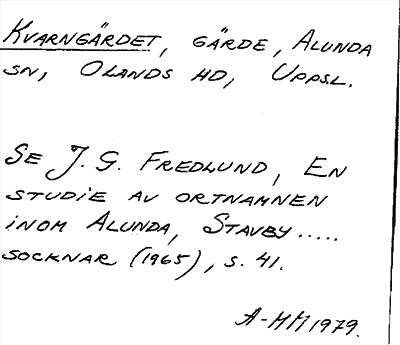 KVARNGÄRDET, GÄRDE, ALUNDA
SN, OLANDS HD, UPPSL.
SE J. G. FREDLUND, EN
STUDIE AV ORTNAMNEN
INOM ALUNDA, STAVBY.....
SOCKNAR (1965), S. 41.
A-MM 1979.